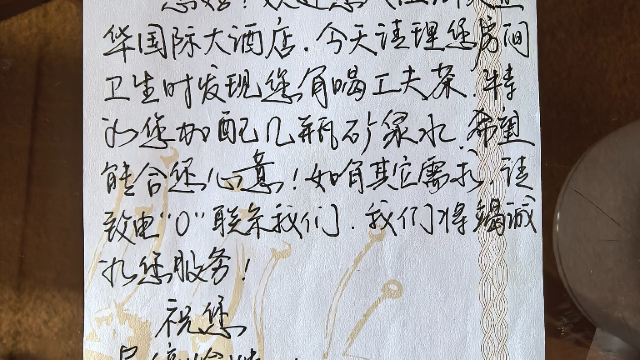 您好！欢迎您入住
华国际大酒店．今天清理您房间
卫生时发现您有喝工夫茶．特
为您加配几瓶矿泉水．希望
能合您心意！如有其它需求，请
致电“0”联系我们．我们将竭诚
为您服务！
祝您